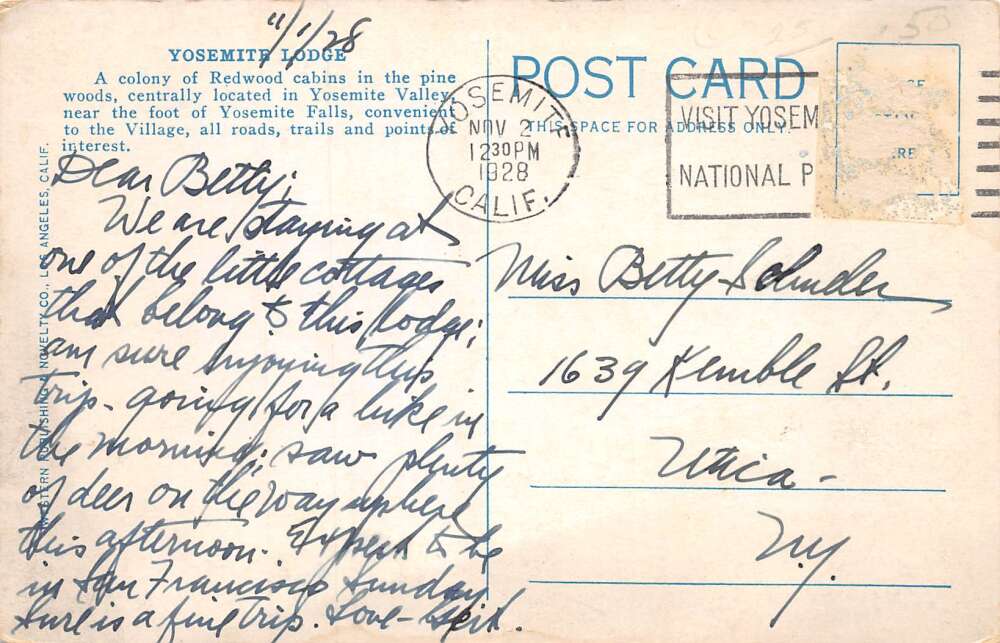 11/1/28
YOSEMITE LODGE
A colony of Redwood cabins in the pine
woods, centrally located in Yosemite Valley,
near the foot of Yosemite Falls, convenient
to the Village, all roads, trails and points of
interest.
Dear Betty;
We are staying at
one of the little cottages
that belong to this lodge;
am sure enjoying this
trip - going for a hike in
the morning; saw plenty
of deer on the way up here
this afternoon. Expect to be
in San Francisco Sunday
Sure is a fine trip. Love -
WESTERN PUBLISHING & NOVELTY CO., LOS ANGELES, CALIF.
POST CARD
THIS SPACE FOR ADDRESS ONLY
YOSEMITE
NOV 2
12 30 PM
1928
CALIF.
VISIT YOSEM
NATIONAL P
RE
.50
Miss Betty
1639 Kemble St.
Utica -
N.Y.